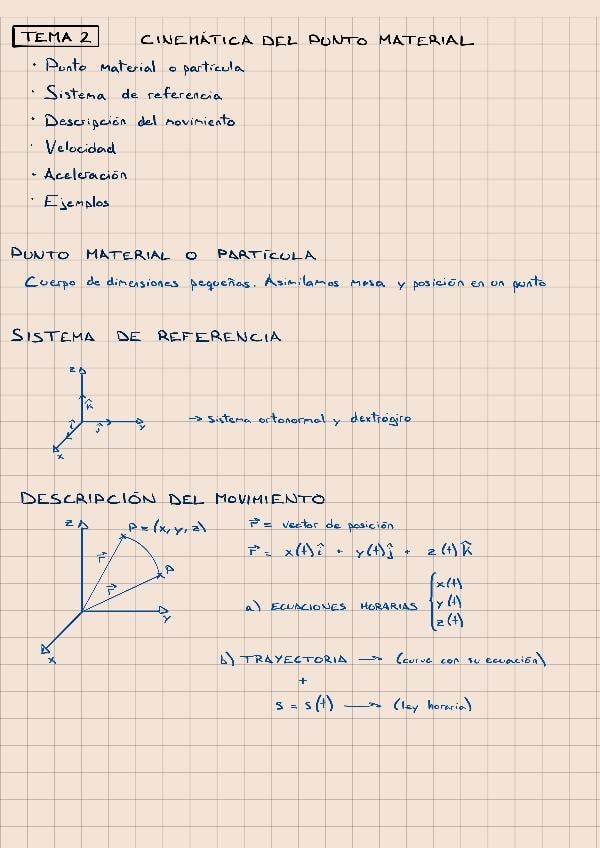 TEMA 2 CINEMÁTICA DEL PUNTO MATERIAL
· Punto material o partícula
· Sistema de referencia
· Descripción del movimiento
· Velocidad
· Aceleración
· Ejemplos
PUNTO MATERIAL O PARTÍCULA
Cuerpo de dimensiones pequeñas. Asimilamos masa y posición en un punto
SISTEMA DE REFERENCIA
z
k̂
î ĵ y
x
→ sistema ortonormal y dextrógiro
DESCRIPCIÓN DEL MOVIMIENTO
z P=(x,y,z) r⃗ = vector de posición
r⃗ = x(t)î + y(t)ĵ + z(t)k̂
r⃗ P
r⃗
y
x
a) ECUACIONES HORARIAS { x(t)
y(t)
z(t)
b) TRAYECTORIA → (curva con su ecuación)
+
s = s(t) → (ley horaria)